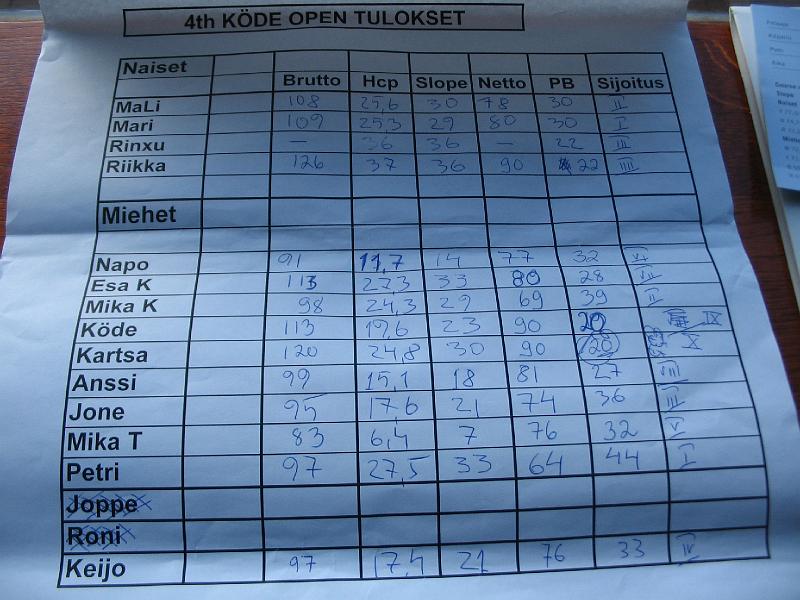 4th KÖDE OPEN TULOKSET
Naiset
Brutto Hcp Slope Netto PB Sijoitus
MaLi 108 25,6 30 78 30 II
Mari 109 25,3 29 80 30 I
Rinxu — 36 36 — 22 III
Riikka 126 37 36 90 22 IIII
Miehet
Napo 91 11,7 14 77 32 VI
Esa K 113 27,3 33 80 28 VII
Mika K 98 24,3 29 69 39 II
Köde 113 19,6 23 90 20 IX
Kartsa 120 24,8 30 90 20 X
Anssi 99 15,1 18 81 27 VIII
Jone 95 17,6 21 74 36 III
Mika T 83 6,4 7 76 32 V
Petri 97 27,5 33 64 44 I
Joppe
Roni
Keijo 97 17,4 21 76 33 IV